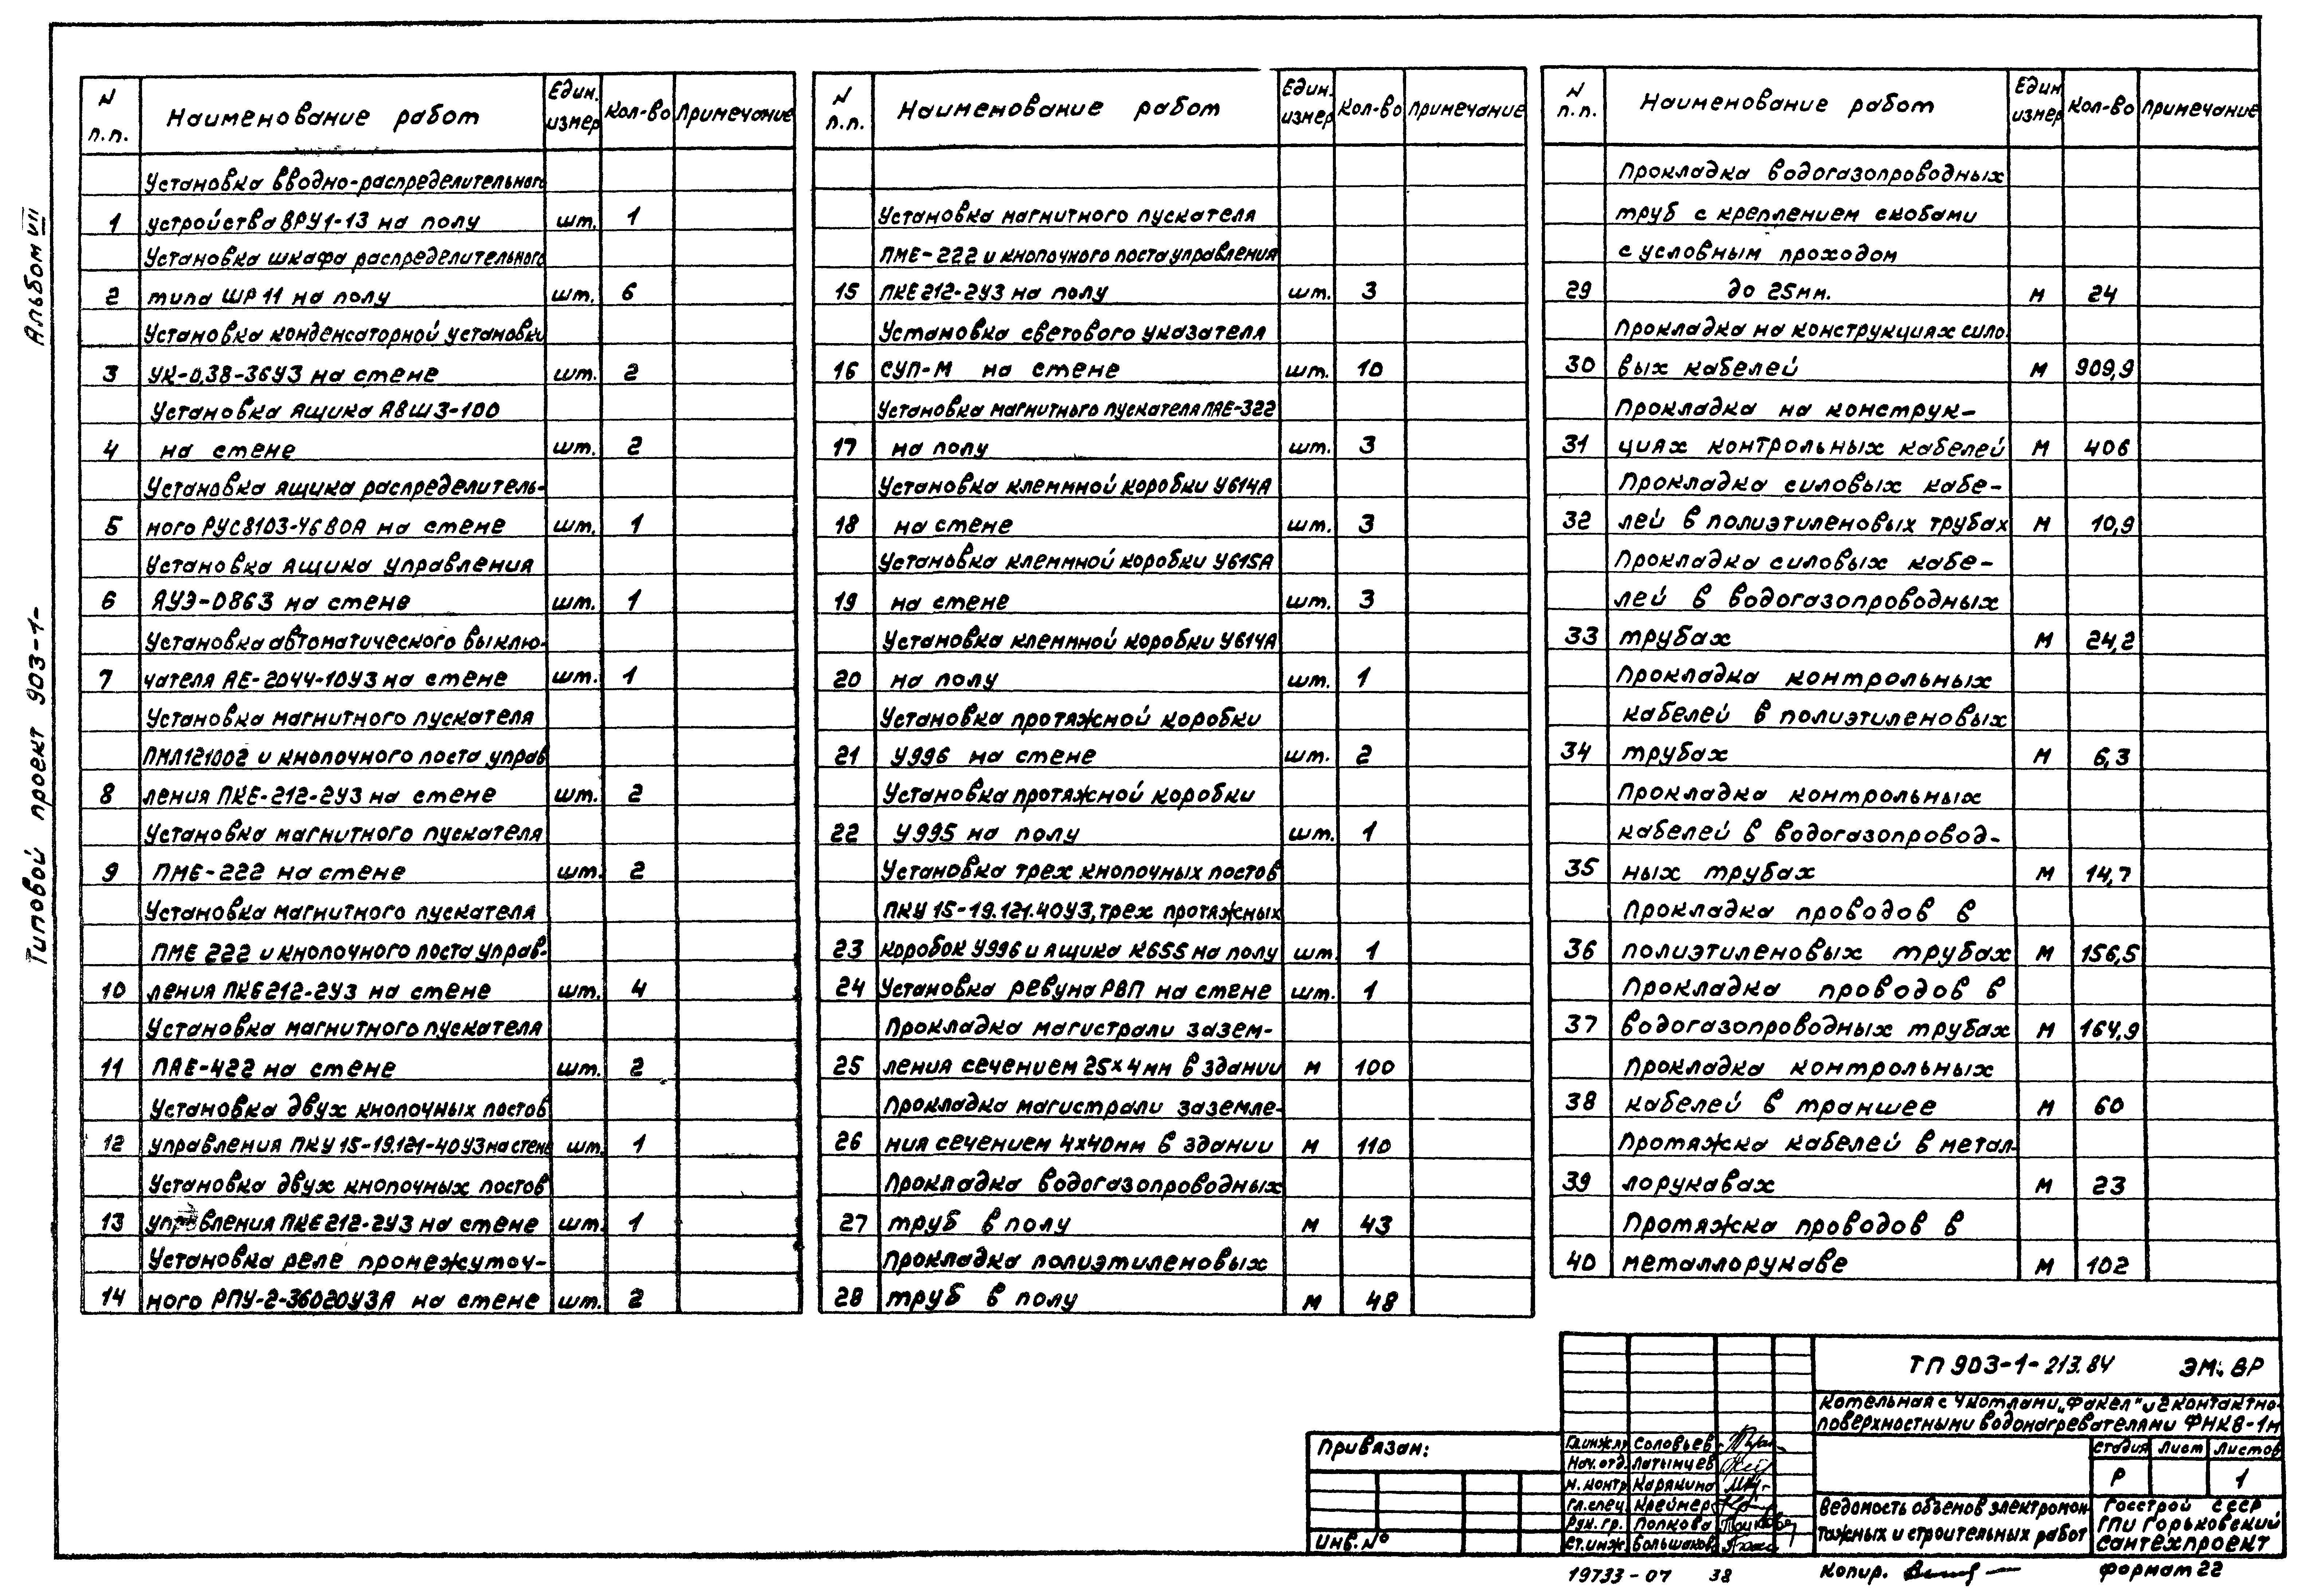 Альбом VII
Типовой проект 903-1-
N п.п. Наименование работ Един. измер Кол-во Примечание
Установка вводно-распределительного
1 устройства ВРУ1-13 на полу шт. 1
Установка шкафа распределительного
2 типа ШР11 на полу шт. 6
Установка конденсаторной установки
3 УК-0,38-36У3 на стене шт. 2
Установка ящика ЯВШ3-100
4 на стене шт. 2
Установка ящика распределитель-
5 ного РУС8103-4680А на стене шт. 1
Установка ящика управления
6 ЯУЭ-0863 на стене шт. 1
Установка автоматического выклю-
7 чателя АЕ-2044-10У3 на стене шт. 1
Установка магнитного пускателя
ПМЛ121002 и кнопочного поста управ
8 ления ПКЕ-212-2У3 на стене шт. 2
Установка магнитного пускателя
9 ПМЕ-222 на стене шт. 2
Установка магнитного пускателя
ПМЕ 222 и кнопочного поста управ-
10 ления ПКЕ212-2У3 на стене шт. 4
Установка магнитного пускателя
11 ПАЕ-422 на стене шт. 2
Установка двух кнопочных постов
12 управления ПКУ15-19.121-40У3 на стене шт. 1
Установка двух кнопочных постов
13 управления ПКЕ212-2У3 на стене шт. 1
Установка реле промежуточ-
14 ного РПУ-2-36020У3А на стене шт. 2
N п.п. Наименование работ Един. измер Кол-во Примечание
Установка магнитного пускателя
ПМЕ-222 и кнопочного поста управления
15 ПКЕ212-2У3 на полу шт. 3
Установка светового указателя
16 СУП-М на стене шт. 10
Установка магнитного пускателя ПАЕ-322
17 на полу шт. 3
Установка клеммной коробки У614А
18 на стене шт. 3
Установка клеммной коробки У615А
19 на стене шт. 3
Установка клеммной коробки У614А
20 на полу шт. 1
Установка протяжной коробки
21 У996 на стене шт. 2
Установка протяжной коробки
22 У995 на полу шт. 1
Установка трех кнопочных постов
ПКУ 15-19.121.40У3, трех протяжных
23 коробок У996 и ящика К655 на полу шт. 1
24 Установка ревуна РВП на стене шт. 1
Прокладка магистрали зазем-
25 ления сечением 25×4мм в здании м 100
Прокладка магистрали заземле-
26 ния сечением 4×40мм в здании м 110
Прокладка водогазопроводных
27 труб в полу м 43
Прокладка полиэтиленовых
28 труб в полу м 48
N п.п. Наименование работ Един измер Кол-во Примечание
Прокладка водогазопроводных
труб с креплением скобами
с условным проходом
29 до 25мм. м 24
Прокладка на конструкциях сило-
30 вых кабелей м 909,9
Прокладка на конструк-
31 циях контрольных кабелей м 406
Прокладка силовых кабе-
32 лей в полиэтиленовых трубах м 10,9
Прокладка силовых кабе-
лей в водогазопроводных
33 трубах м 24,2
Прокладка контрольных
кабелей в полиэтиленовых
34 трубах м 6,3
Прокладка контрольных
кабелей в водогазопровод-
35 ных трубах м 14,7
Прокладка проводов в
36 полиэтиленовых трубах м 156,5
Прокладка проводов в
37 водогазопроводных трубах м 164,9
Прокладка контрольных
38 кабелей в траншее м 60
Протяжка кабелей в метал-
39 лорукавах м 23
Протяжка проводов в
40 металлорукаве м 102
ТП 903-1-213.84 ЭМ.ВР
Котельная с 4 котлами „Факел" и 2 контактно-
поверхностными водонагревателями ФНКВ-1м
Привязан:
Инв.№
Гл.инж.пр Соловьев
Нач.отд. Латынцев
Н.контр Карякина
Гл.спец. Крейнер
Рук.гр. Попкова
Ст.инж. Большаков
Стадия Лист Листов
Р 1
Ведомость объемов электромон-
тажных и строительных работ
Госстрой СССР
ГПИ Горьковский
Сантехпроект
19733-07 38
Копир.
Формат 22